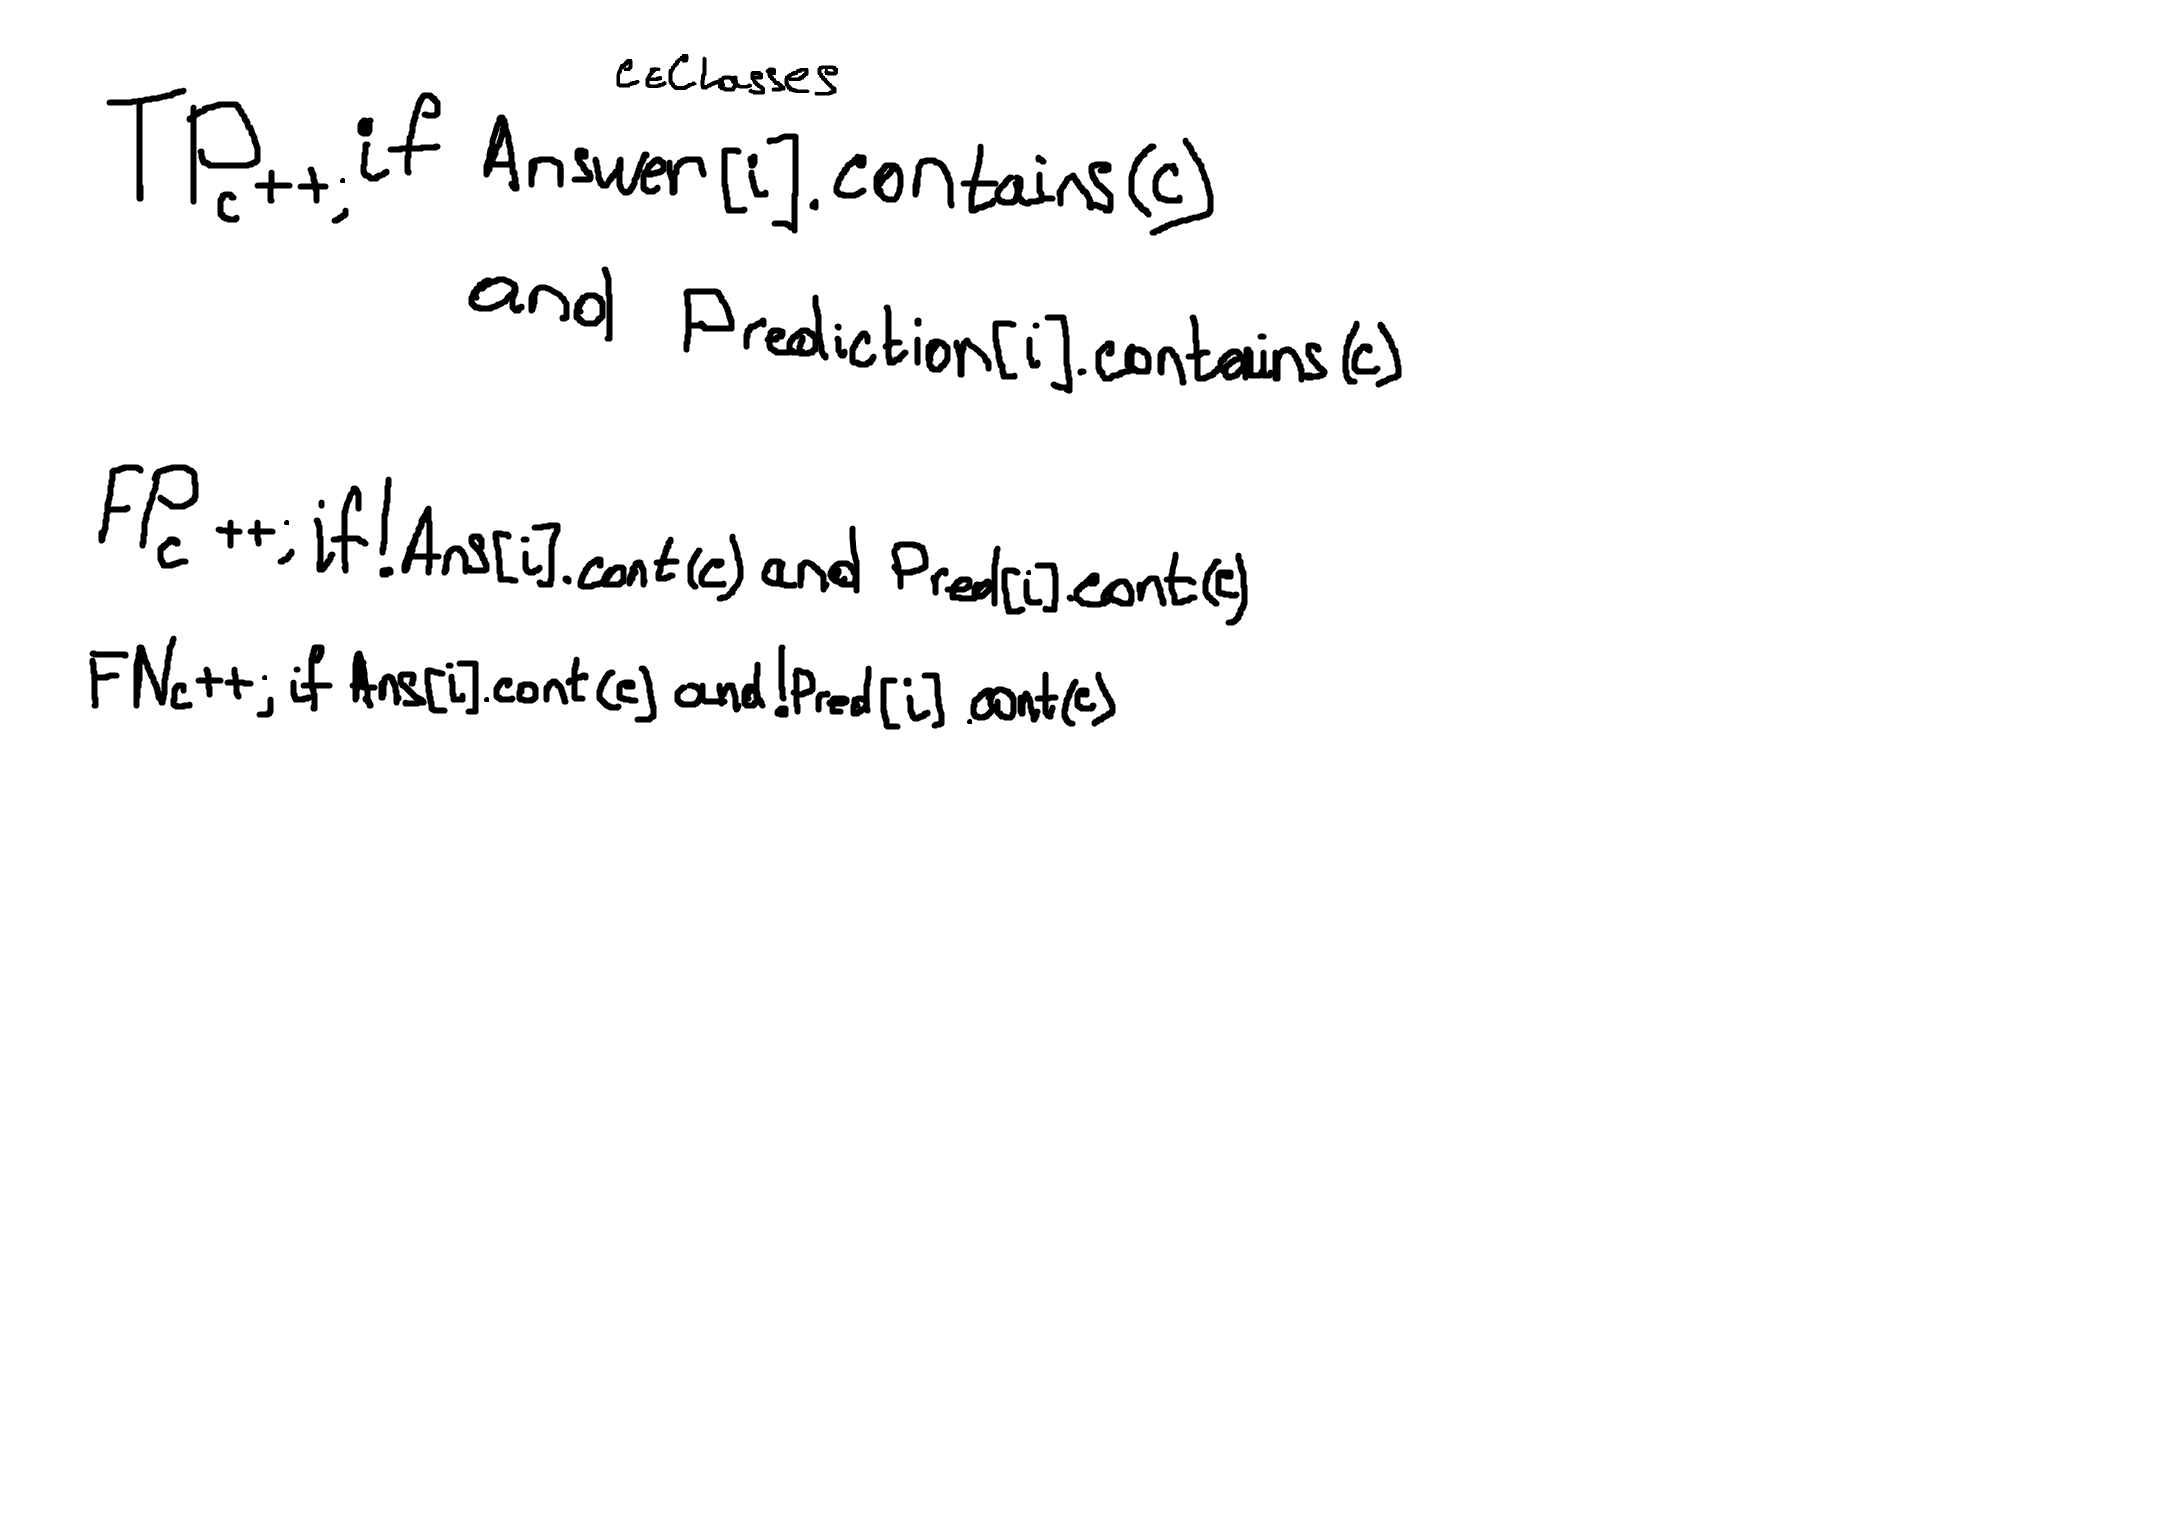 c∈Classes
TPc++; if Answer[i].contains(c)
and Prediction[i].contains(c)
FPc++; if !Ans[i].cont(c) and Pred[i].cont(c)
FNc++; if Ans[i].cont(c) and !Pred[i].cont(c)